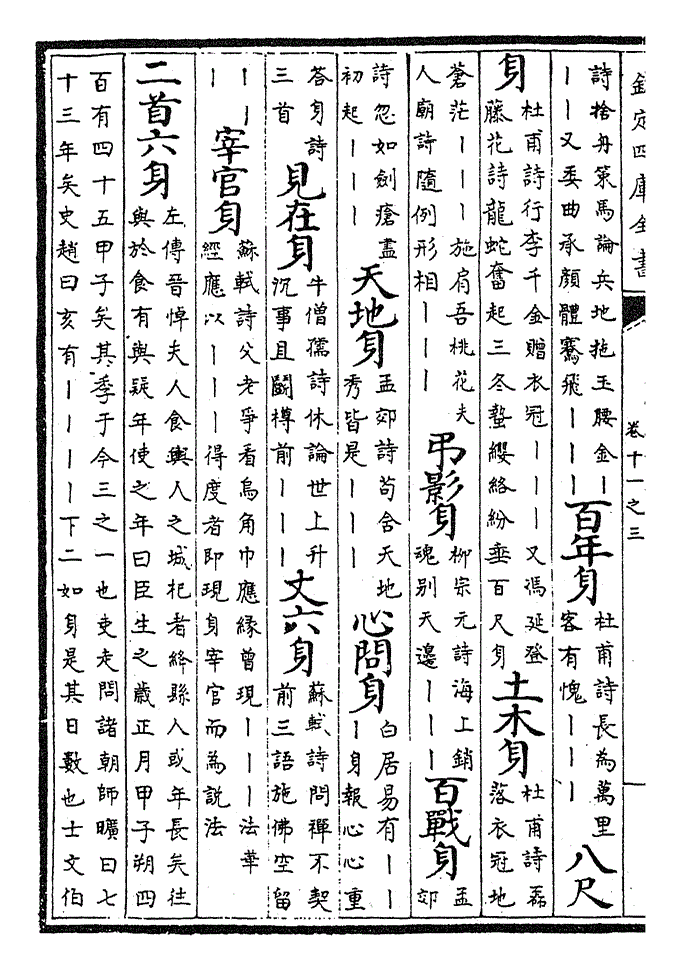 欽定四庫全書 卷十一之三
詩捨舟策馬論兵地拖玉腰金｜
｜｜又委曲承顏體騫飛｜｜｜
百年身
杜甫詩長為萬里
客有愧｜｜｜
八尺
身
杜甫詩行李千金贈衣冠｜｜｜又馮延登
藤花詩龍蛇奮起三冬蟄纓絡紛垂百尺身
土木身
杜甫詩磊
落衣冠地
蒼茫｜｜｜施肩吾桃花夫
人廟詩隨例形相｜｜｜
弔影身
柳宗元詩海上銷
魂別天邊｜｜｜
百戰身
孟
郊
詩忽如劍瘡盡
初起｜｜｜
天地身
孟郊詩茍舍天地
秀皆是｜｜｜
心問身
白居易有｜｜
｜身報心心重
答身詩
三首
見在身
牛僧孺詩休論世上升
沉事且鬭樽前｜｜｜
丈六身
蘇軾詩問禪不契
前三語施佛空留
｜｜
｜
宰官身
蘇軾詩父老爭看烏角巾應緣曾現｜｜｜法華
經應以｜｜｜得度者即現身宰官而為說法
二首六身
左傳晉悼夫人食輿人之城杞者絳縣人或年長矣往
與於食有與疑年使之年曰臣生之歲正月甲子朔四
百有四十五甲子矣其季于今三之一也吏走問諸朝師曠曰七
十三年矣史趙曰亥有｜｜｜｜下二如身是其日數也士文伯